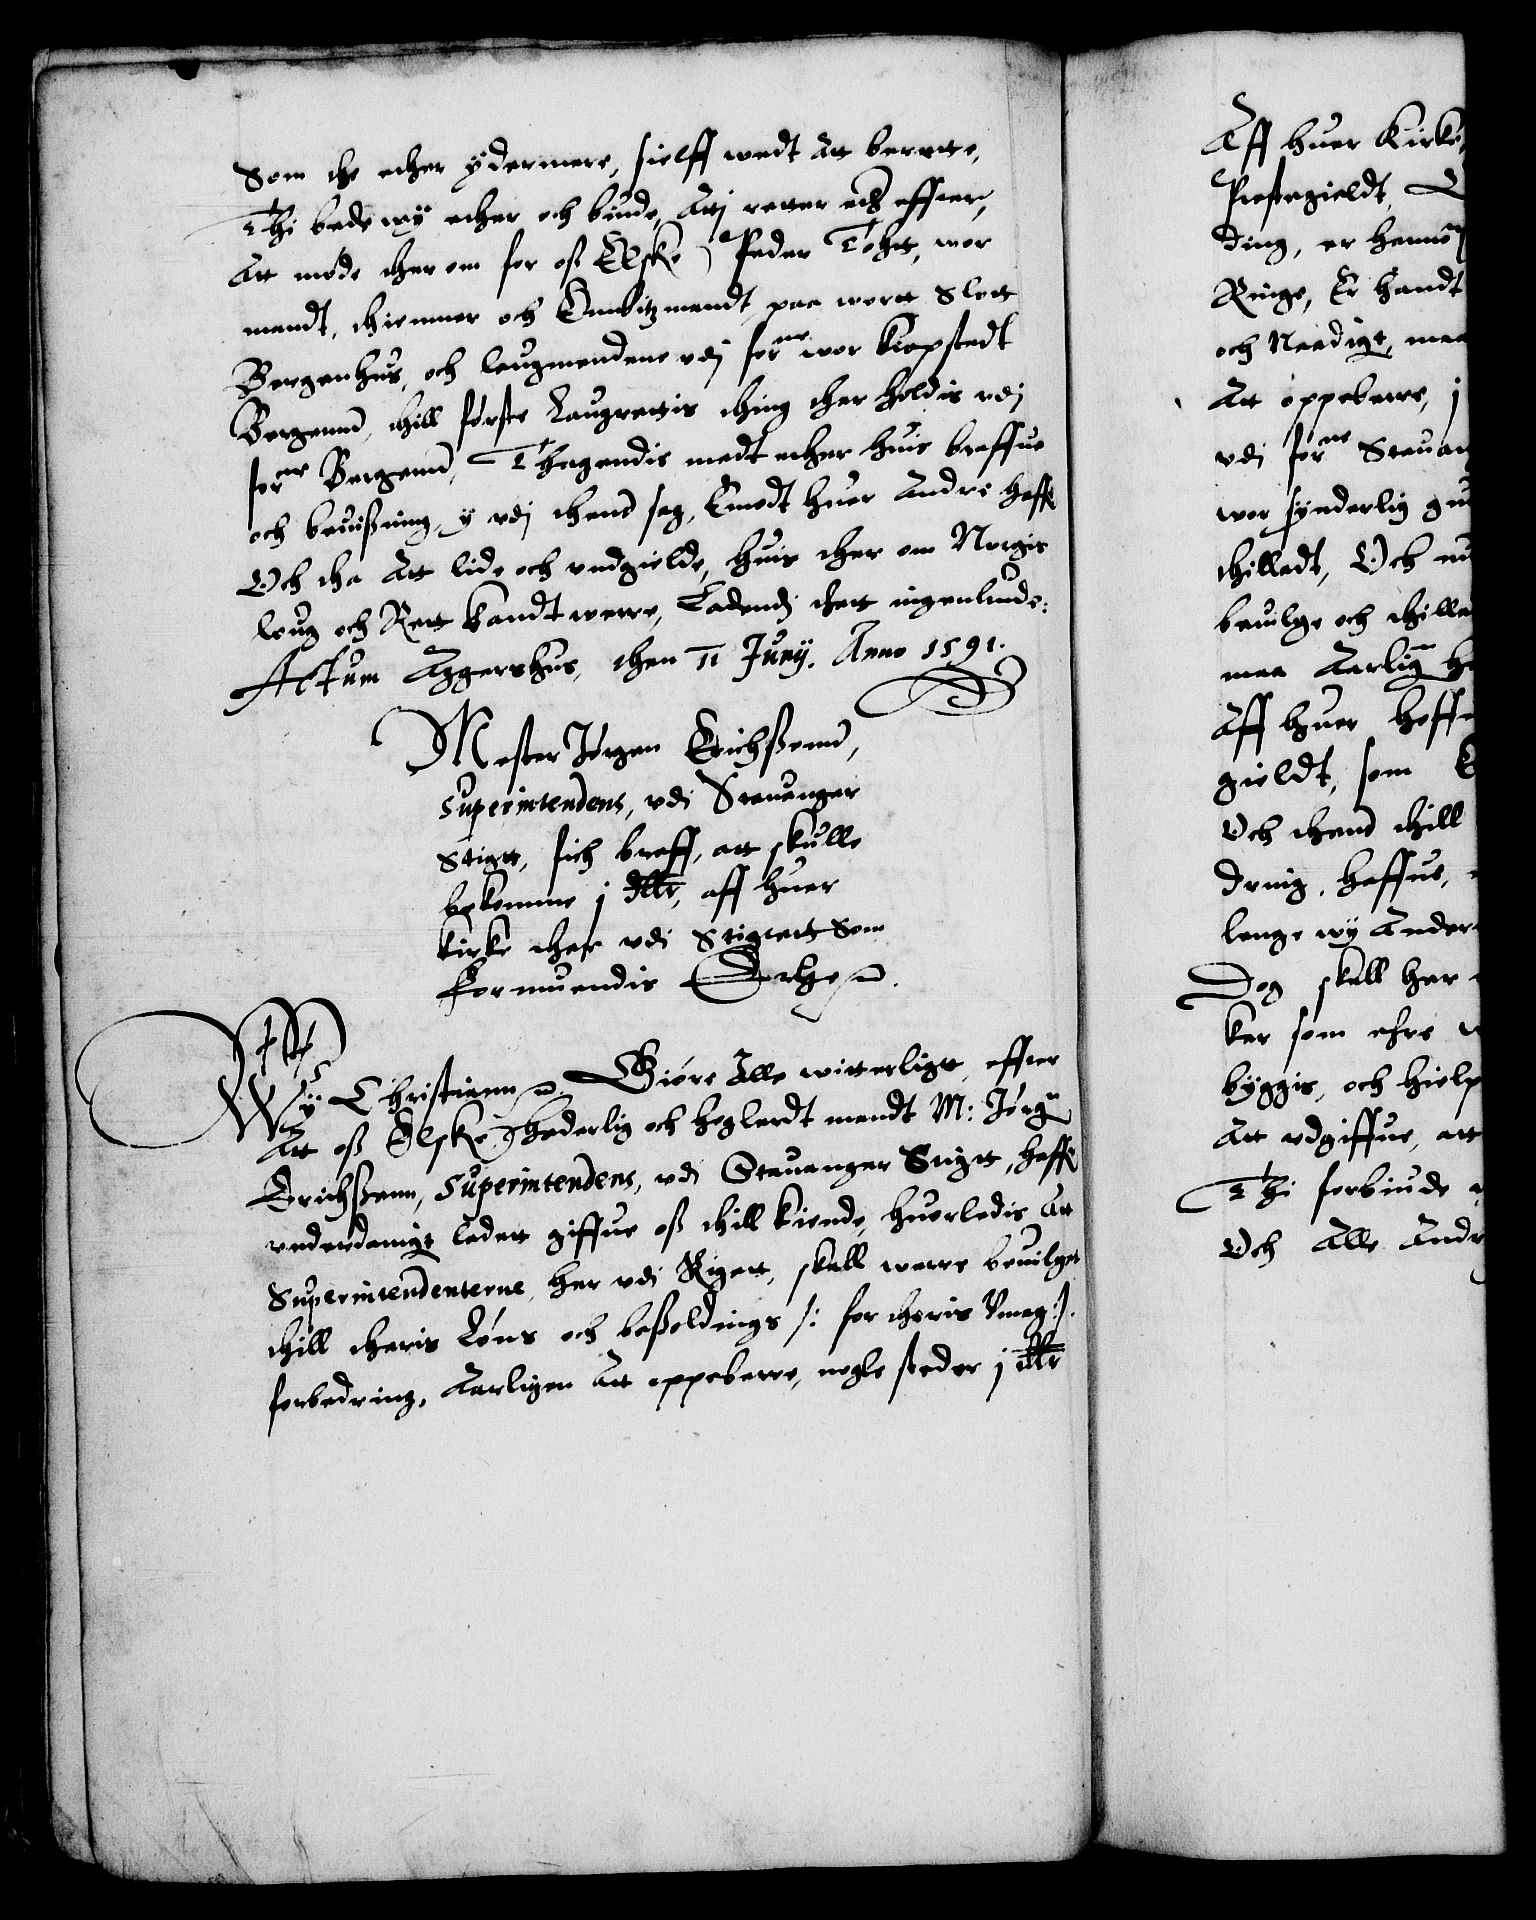 Som the ether ÿdermere, sielff wedt Att berette,
Thi bede wÿ ether och biude, Attj retter eder effter,
Att møde ther om for oß Elske) Peder Tohtt, wor
mandt, thienner och Embitzmandt, paa wortt Slott
Bergenhus, och laugmendene vdj forne wor kiøpstedt
Bergenn, thill første Laugrettis thing ther holdis vdj
forne Bergenn, Thagendis medt ether huis breffue
och beuißning, y vdj thend sag, Emodt huer Andre haffe
Och tha Att lide och vndgielde, huis ther om Norgis
loug och Rett kandt werre, Ladendj thett ingenlunde:
Actum Aggershus, then 11 Junij. Anno 1591.
Mester Jørgen Erichßenn,
Superintendens, vdi Stauanger
Stigtt, fich breff, att skulle
bekomme j dlr, aff huer
kirke ther vdi Stigtett Som
formuendis Er
Wÿ Christiann Giøre Alle witterligtt, effter
Att oß Elske) hederlig och høglerdt mandt M: Jørgn
Erichßenn, Superintendens, vdi Stauanger Stigtt, haffe
vnderdanigt ladett giffue oß thill kiende, huorledis Att
Superintendenterne, her vdi Rigett, skall werre beuilget
thill theris Løns och beßoldings /: for theris Vmag :/.
forbedring, Aarligen Att oppeberre, nogle steder j dlr
Aff huer Kirke,
Prestegieldt,
ding, er hannom
Ringe, Er handt
och Naadigt, maa
Att oppeberre, j
vdi forne Stauan
wor sÿnderlig gu
thilladt, Och nu
beuilge och thilla
maa Aarlig h
Aff huer hoff
gieldt, som
Och thend thill
dring, haffue,
lenge wÿ Ander
Dog skall her
ker som efre
bÿggis, och hielp
Att vdgiffue, att
Thi forbiude
Och Alle Andr